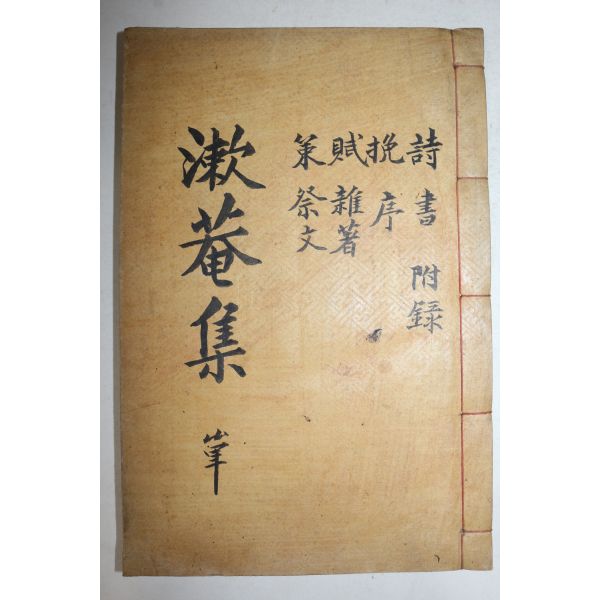 詩 書 附録
挽 序
賦 雜著
策 祭文
漱菴集 單